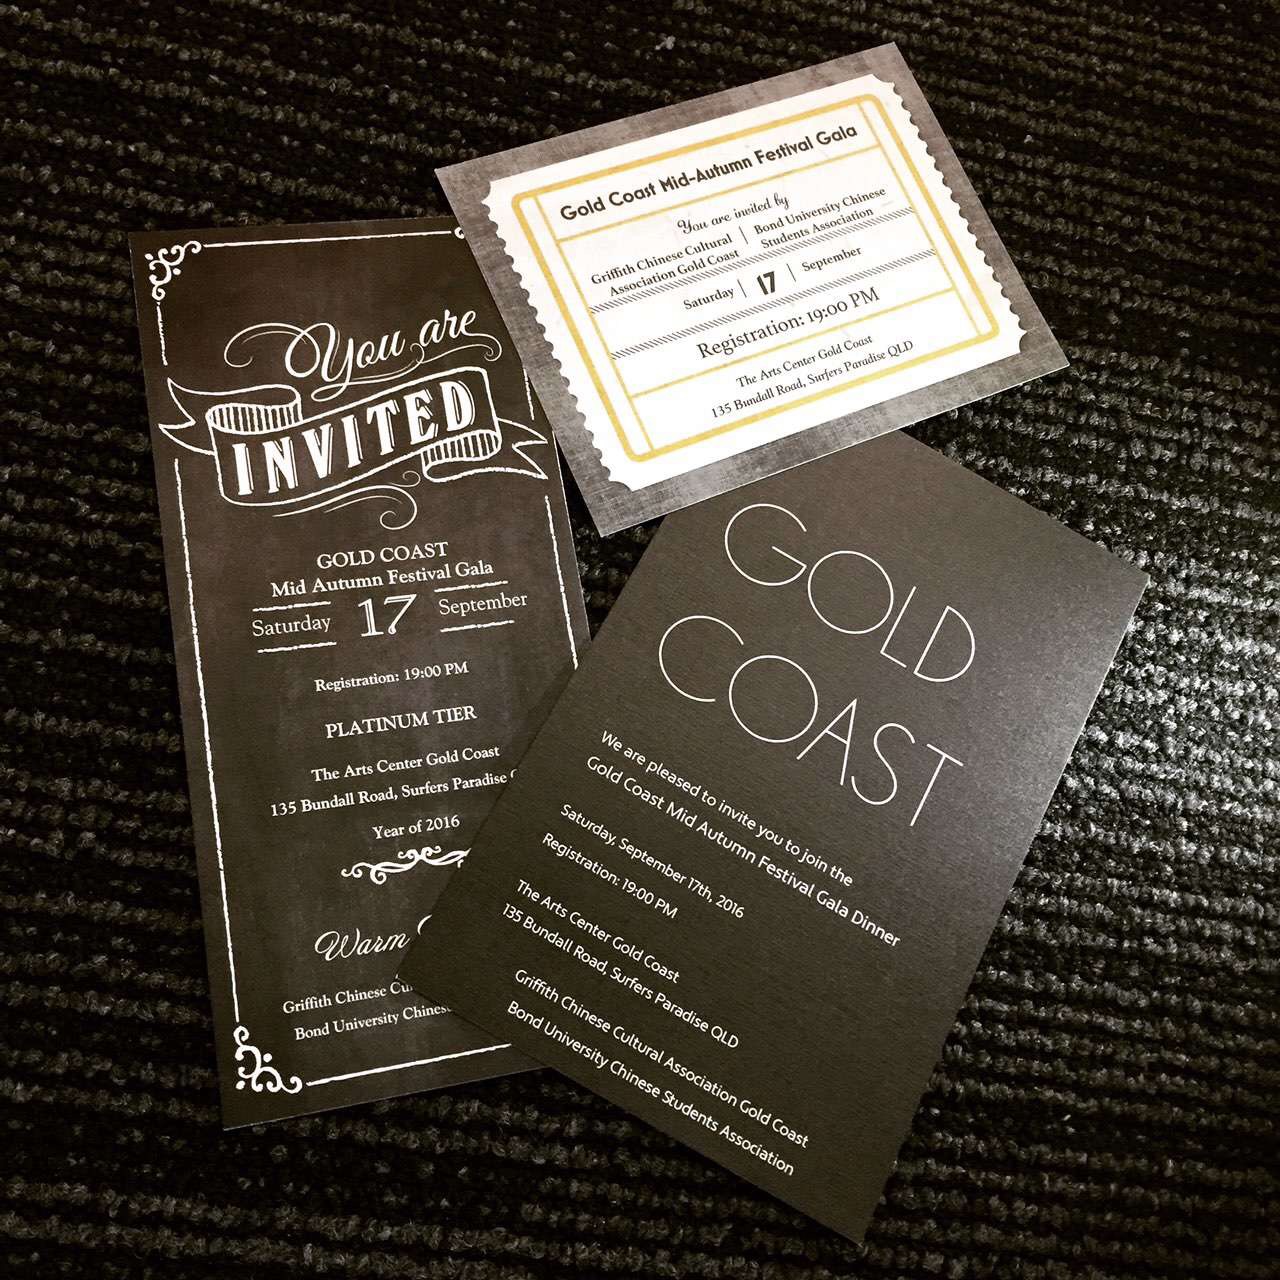 You are
INVITED
GOLD COAST
Mid Autumn Festival Gala
Saturday 17 September
Registration: 19:00 PM
PLATINUM TIER
The Arts Center Gold Coast
135 Bundall Road, Surfers Paradise
Year of 2016
Warm
Griffith Chinese
Bond University Chinese
Gold Coast Mid-Autumn Festival Gala
You are invited by
Griffith Chinese Cultural Bond University Chinese
Association Gold Coast Students Association
Saturday 17 September
Registration: 19:00 PM
The Arts Center Gold Coast
135 Bundall Road, Surfers Paradise QLD
GOLD
COAST
We are pleased to invite you to join the
Gold Coast Mid Autumn Festival Gala Dinner
Saturday, September 17th, 2016
Registration: 19:00 PM
The Arts Center Gold Coast
135 Bundall Road, Surfers Paradise QLD
Griffith Chinese Cultural Association Gold Coast
Bond University Chinese Students Association